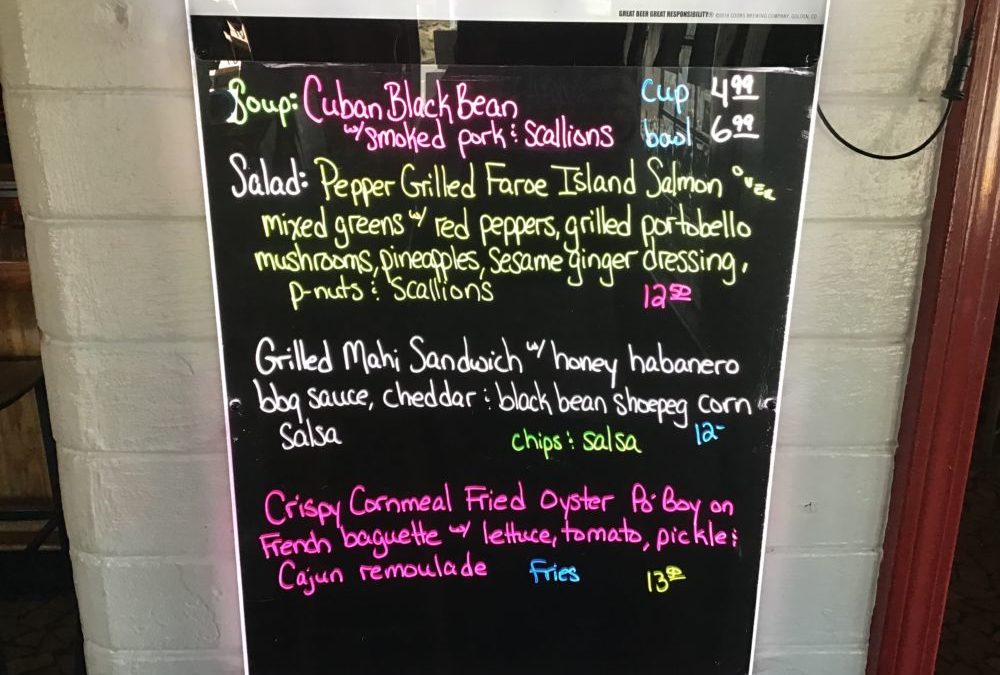 GREAT BEER GREAT RESPONSIBILITY® ©2018 COORS BREWING COMPANY, GOLDEN, CO
Soup: Cuban Black Bean cup 4.99
w/ smoked pork & scallions bowl 6.99
Salad: Pepper Grilled Faroe Island Salmon over
mixed greens w/ red peppers, grilled portobello
mushrooms, pineapples, sesame ginger dressing,
p-nuts & scallions 12.50
Grilled Mahi Sandwich w/ honey habanero
bbq sauce, cheddar & black bean shoepeg corn
salsa chips & salsa 12-
Crispy Cornmeal Fried Oyster Po'Boy on
French baguette w/ lettuce, tomato, pickle &
Cajun remoulade Fries 13.50